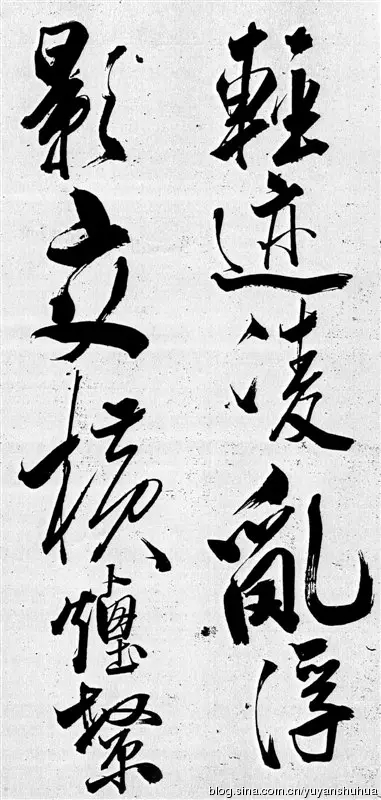 輕迹凌亂浮
影交橫
blog.sina.com.cn/yuyanshuhua